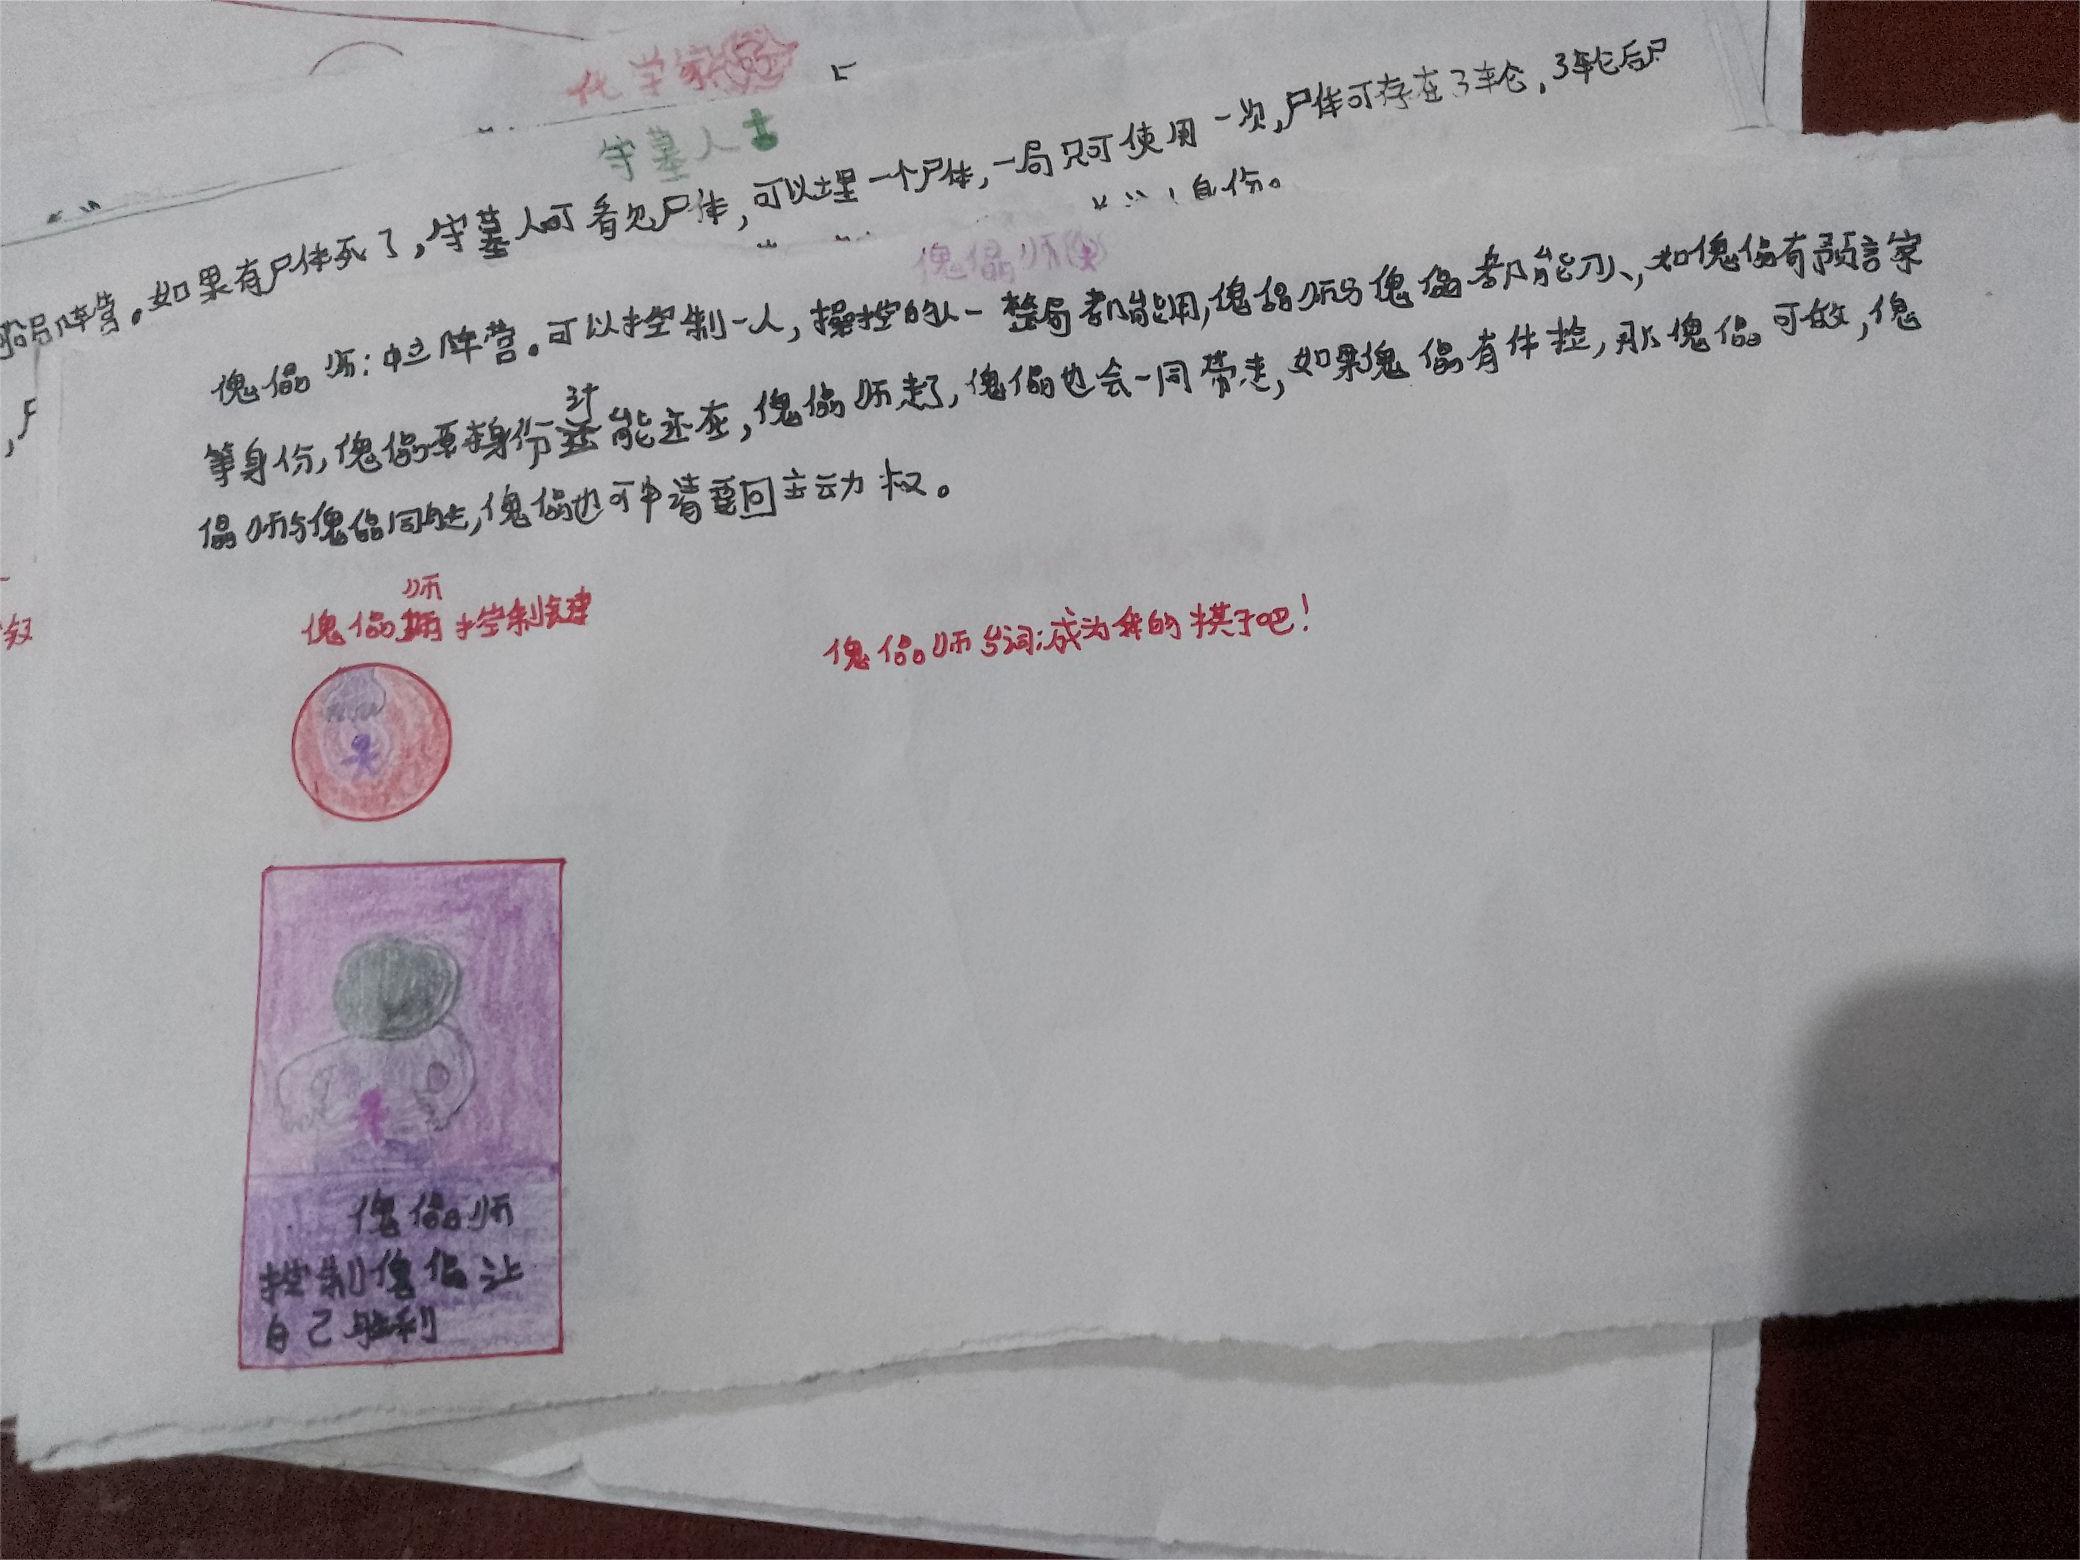 化学家
守墓人
船员阵营。如果有尸体死了,守墓人可看见尸体,可以埋一个尸体,一局只可使用一次,尸体可存在3轮,3轮后尸
身份。
傀儡师
傀儡师:中立阵营。可以控制一人,操控的人一整局都能用,傀儡师与傀儡都能刀人,如傀儡有预言家
等身份,傀儡原本身份技能还在,傀儡师走了,傀儡也会一同带走,如果傀儡有体检,那傀儡可放,傀
儡师与傀儡同胜,傀儡也可申请要回主动权。
傀儡师控制键
傀儡师台词:成为我的棋子吧!
傀儡师
控制傀儡让
自己胜利